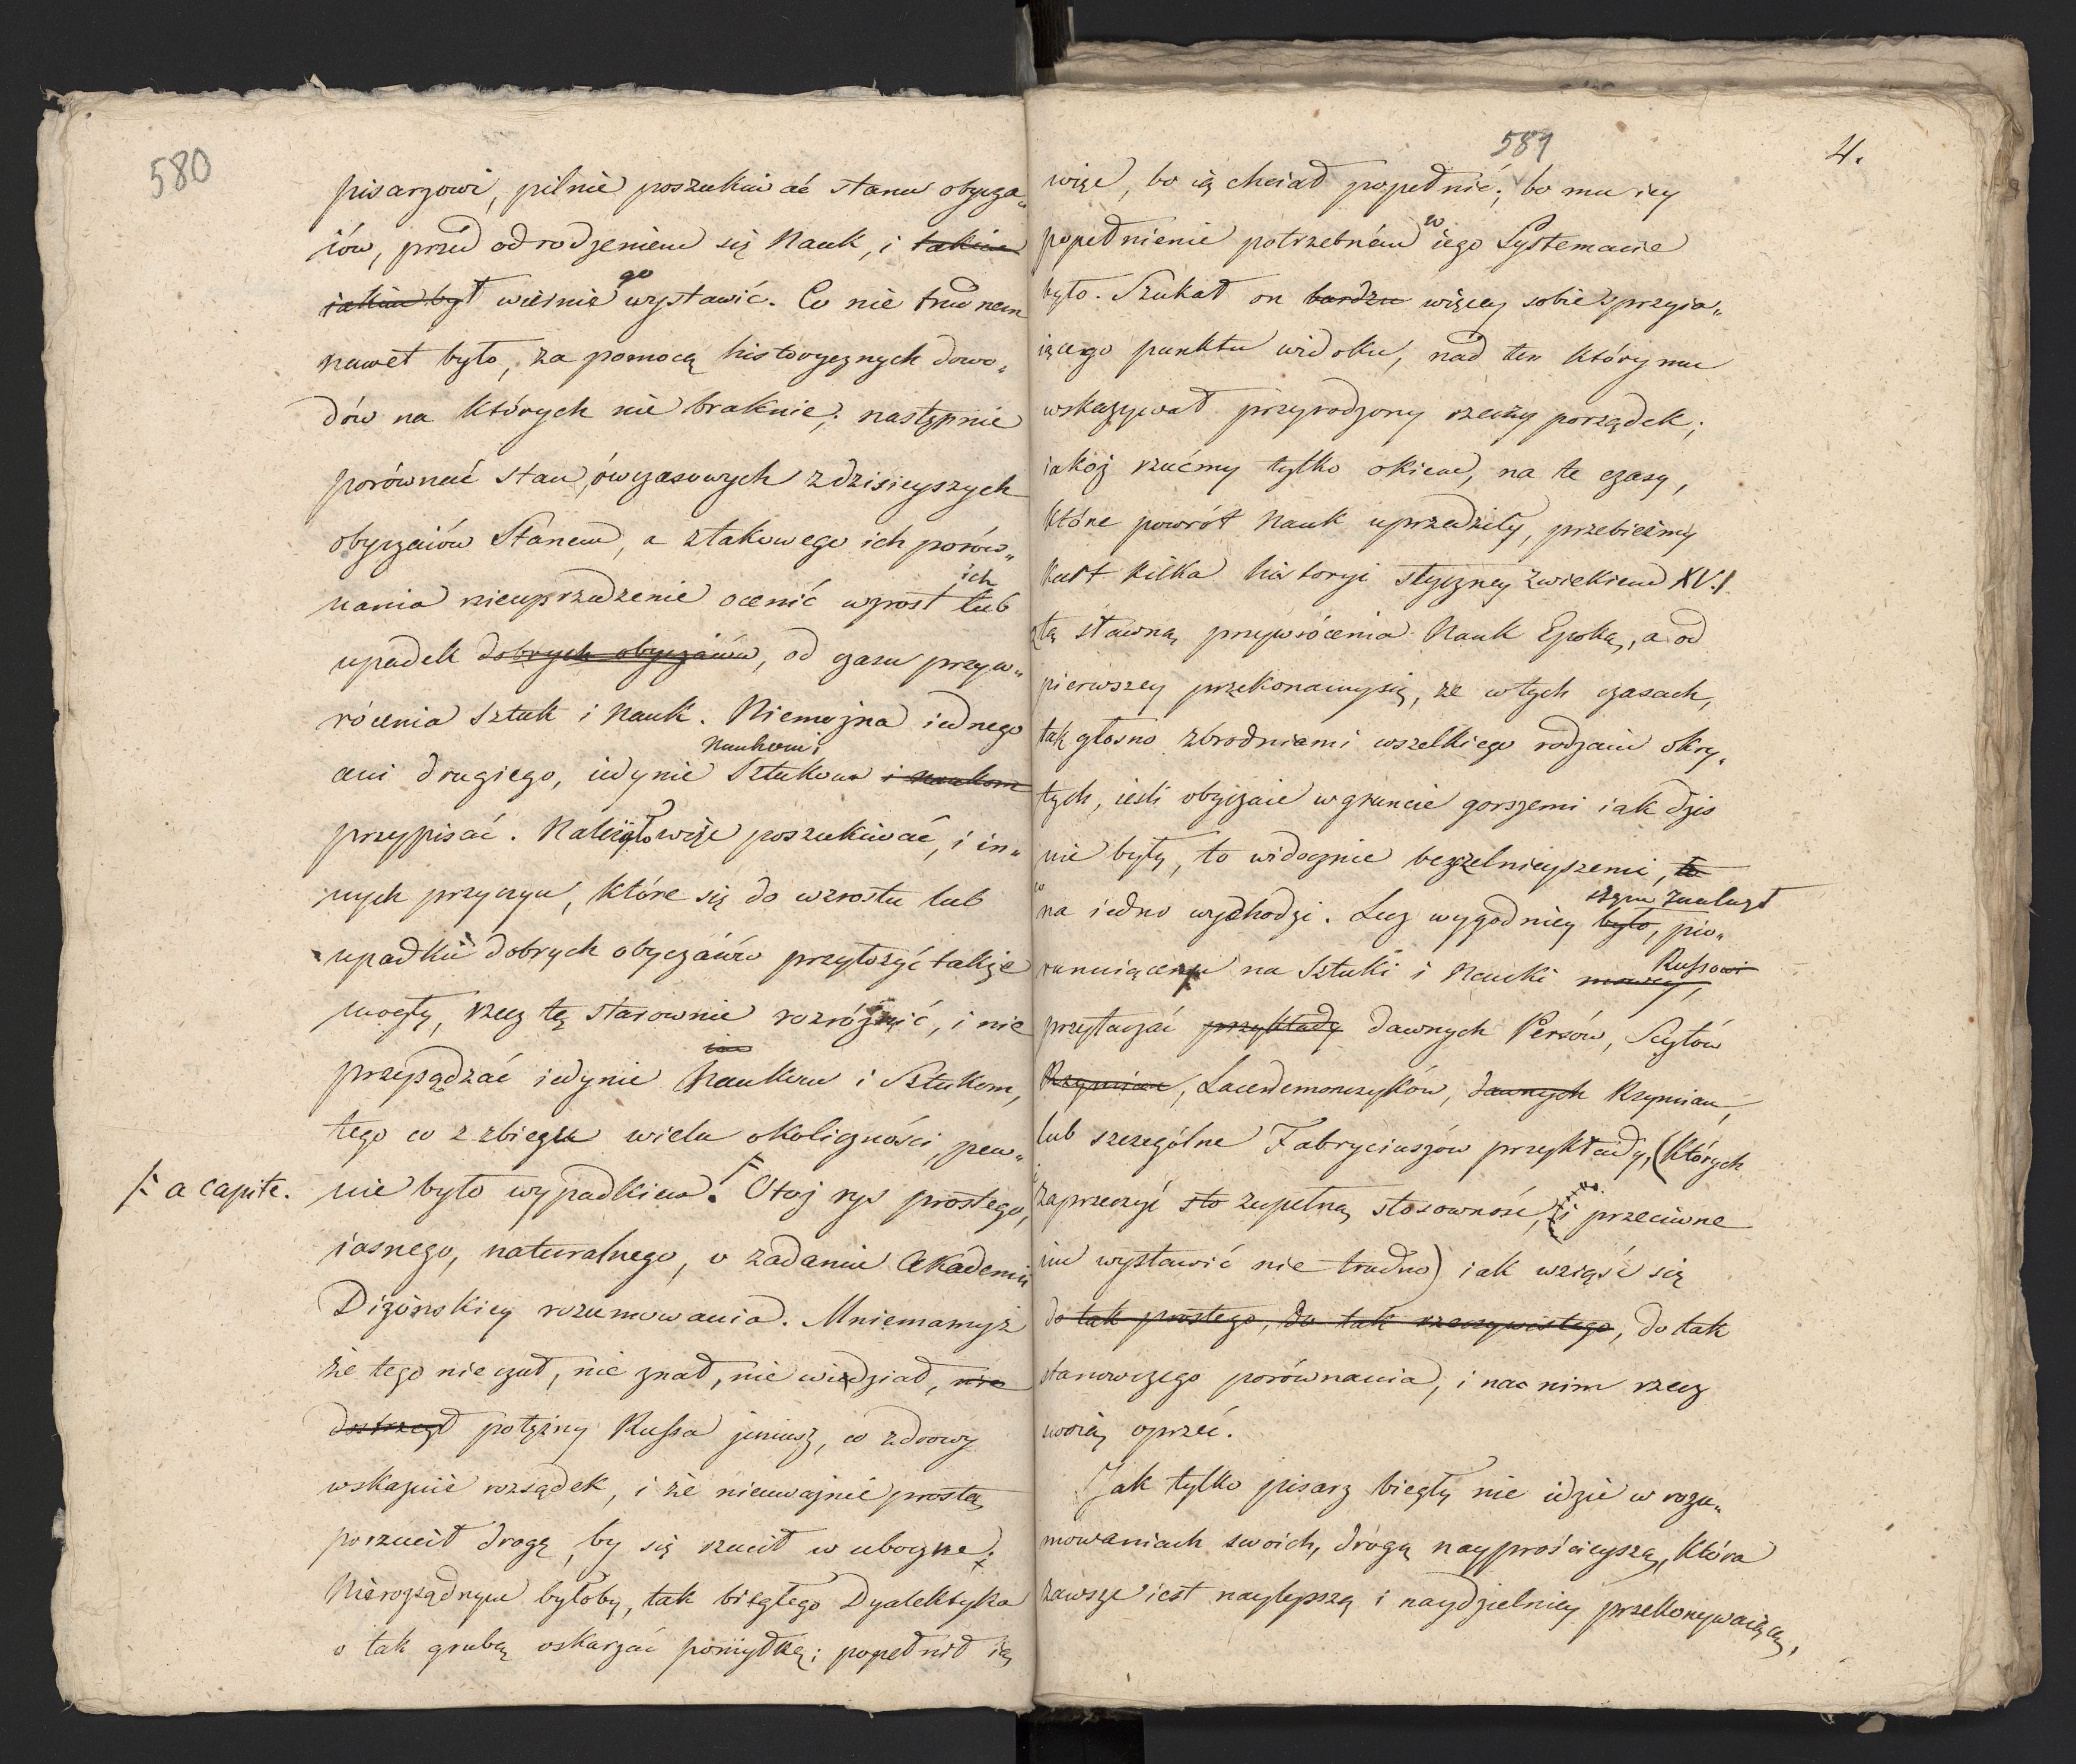 580
pisarzowi, pilnie poszukiwać stanu obycza„
iów, przed odrodzeniem się Nauk, i takim
iakim był wiernie go wystawić. Co nie trudnem
nawet było, za pomocą historycznych dowo„
dów na których nie braknie; następnie
porównać stan, ówczasowych z dzisieyszych
obyczaiów Stanem, a z takowego ich porów„
nania nieuprzedzenie ocenić wzrost ich lub
upadek dobrych obyczaiów, od czasu przyw„
rócenia Sztuk i Nauk. Niemożna iednego
ani drugiego, iedynie Naukom i Sztukom i naukom
przypisać. Należało więc poszukiwać, i in„
nych przyczyn, które się do wzrostu lub
upadku dobrych obyczaiów przyłożyć także
mogły, rzecz tę starownie rozróżnić, i nie
przysądzać iedynie Naukom i Sztukom,
tego co z zbiegu wielu okoliczności, pew„
/: a capite.
nie było wypadkiem. Otoż rys prostego,
iasnego, naturalnego, o zadaniu Akademii
Diżońskiey rozumowania. Mniemamyż
że tego nie czuł, nie znał, nie widział, nie
dostrzegł potężny Russa jeniusz, co zdrowy
wskazuie rozsądek, i że nieuważnie prostą
porzucił drogę, by się rzucił w uboczne.
Nierozsądnym byłoby, tak biegłego Dyalektyka
o tak grubą oskarżać pomyłkę; popełnił ią
581
4.
więc, bo ią chciał popełnić; bo mu iey
popełnienie potrzebném w iego Systemacie
było. Szukał on bardzu więcey sobie sprzyia„
iącego punktu widoku, nad ten który mu
wskazywał przyrodzony rzeczy porządek;
iakoż rzućmy tylko okiem, na te czasy,
które powrót Nauk uprzedziły, przebieżmy
kart kilka historyi styczney z wiekiem XV.I.
z tą sławną przywrócenia Nauk Epoką, a od
pierwszey przekonamy się, że w tych czasach,
tak głosno zbrodniami wszelkiego rodzaiu okry„
tych, iesli obyczaie w gruncie gorszemi iak dzis
nie były, to widocznie bezczelnieyszemi, to
co na iedno wychodzi. Lecz wygodniey było, pio„
runuiącemu na Sztuki i Nauki Russowi
przytaczać przykłady dawnych Persów, Scytów
Rzymian, Lacedemończyków, dawnych Rzymian,
lub szczególne Fabryciuszów przykłady, (których
zaprzeczyć sto zupełną stosowność, i przeciwne
im wystawić nie trudno) iak wziąść się
do tak prostego, do tak rzeczywistego, do tak
stanowczego porównania, i na nim rzecz
swoią oprzeć.
Jak tylko pisarz biegły nie idzie w rozu„
mowaniach swoich, drogą nayprościeyszą, która
zawsze iest naylepszą i naydzielniey przekonywaiącą,